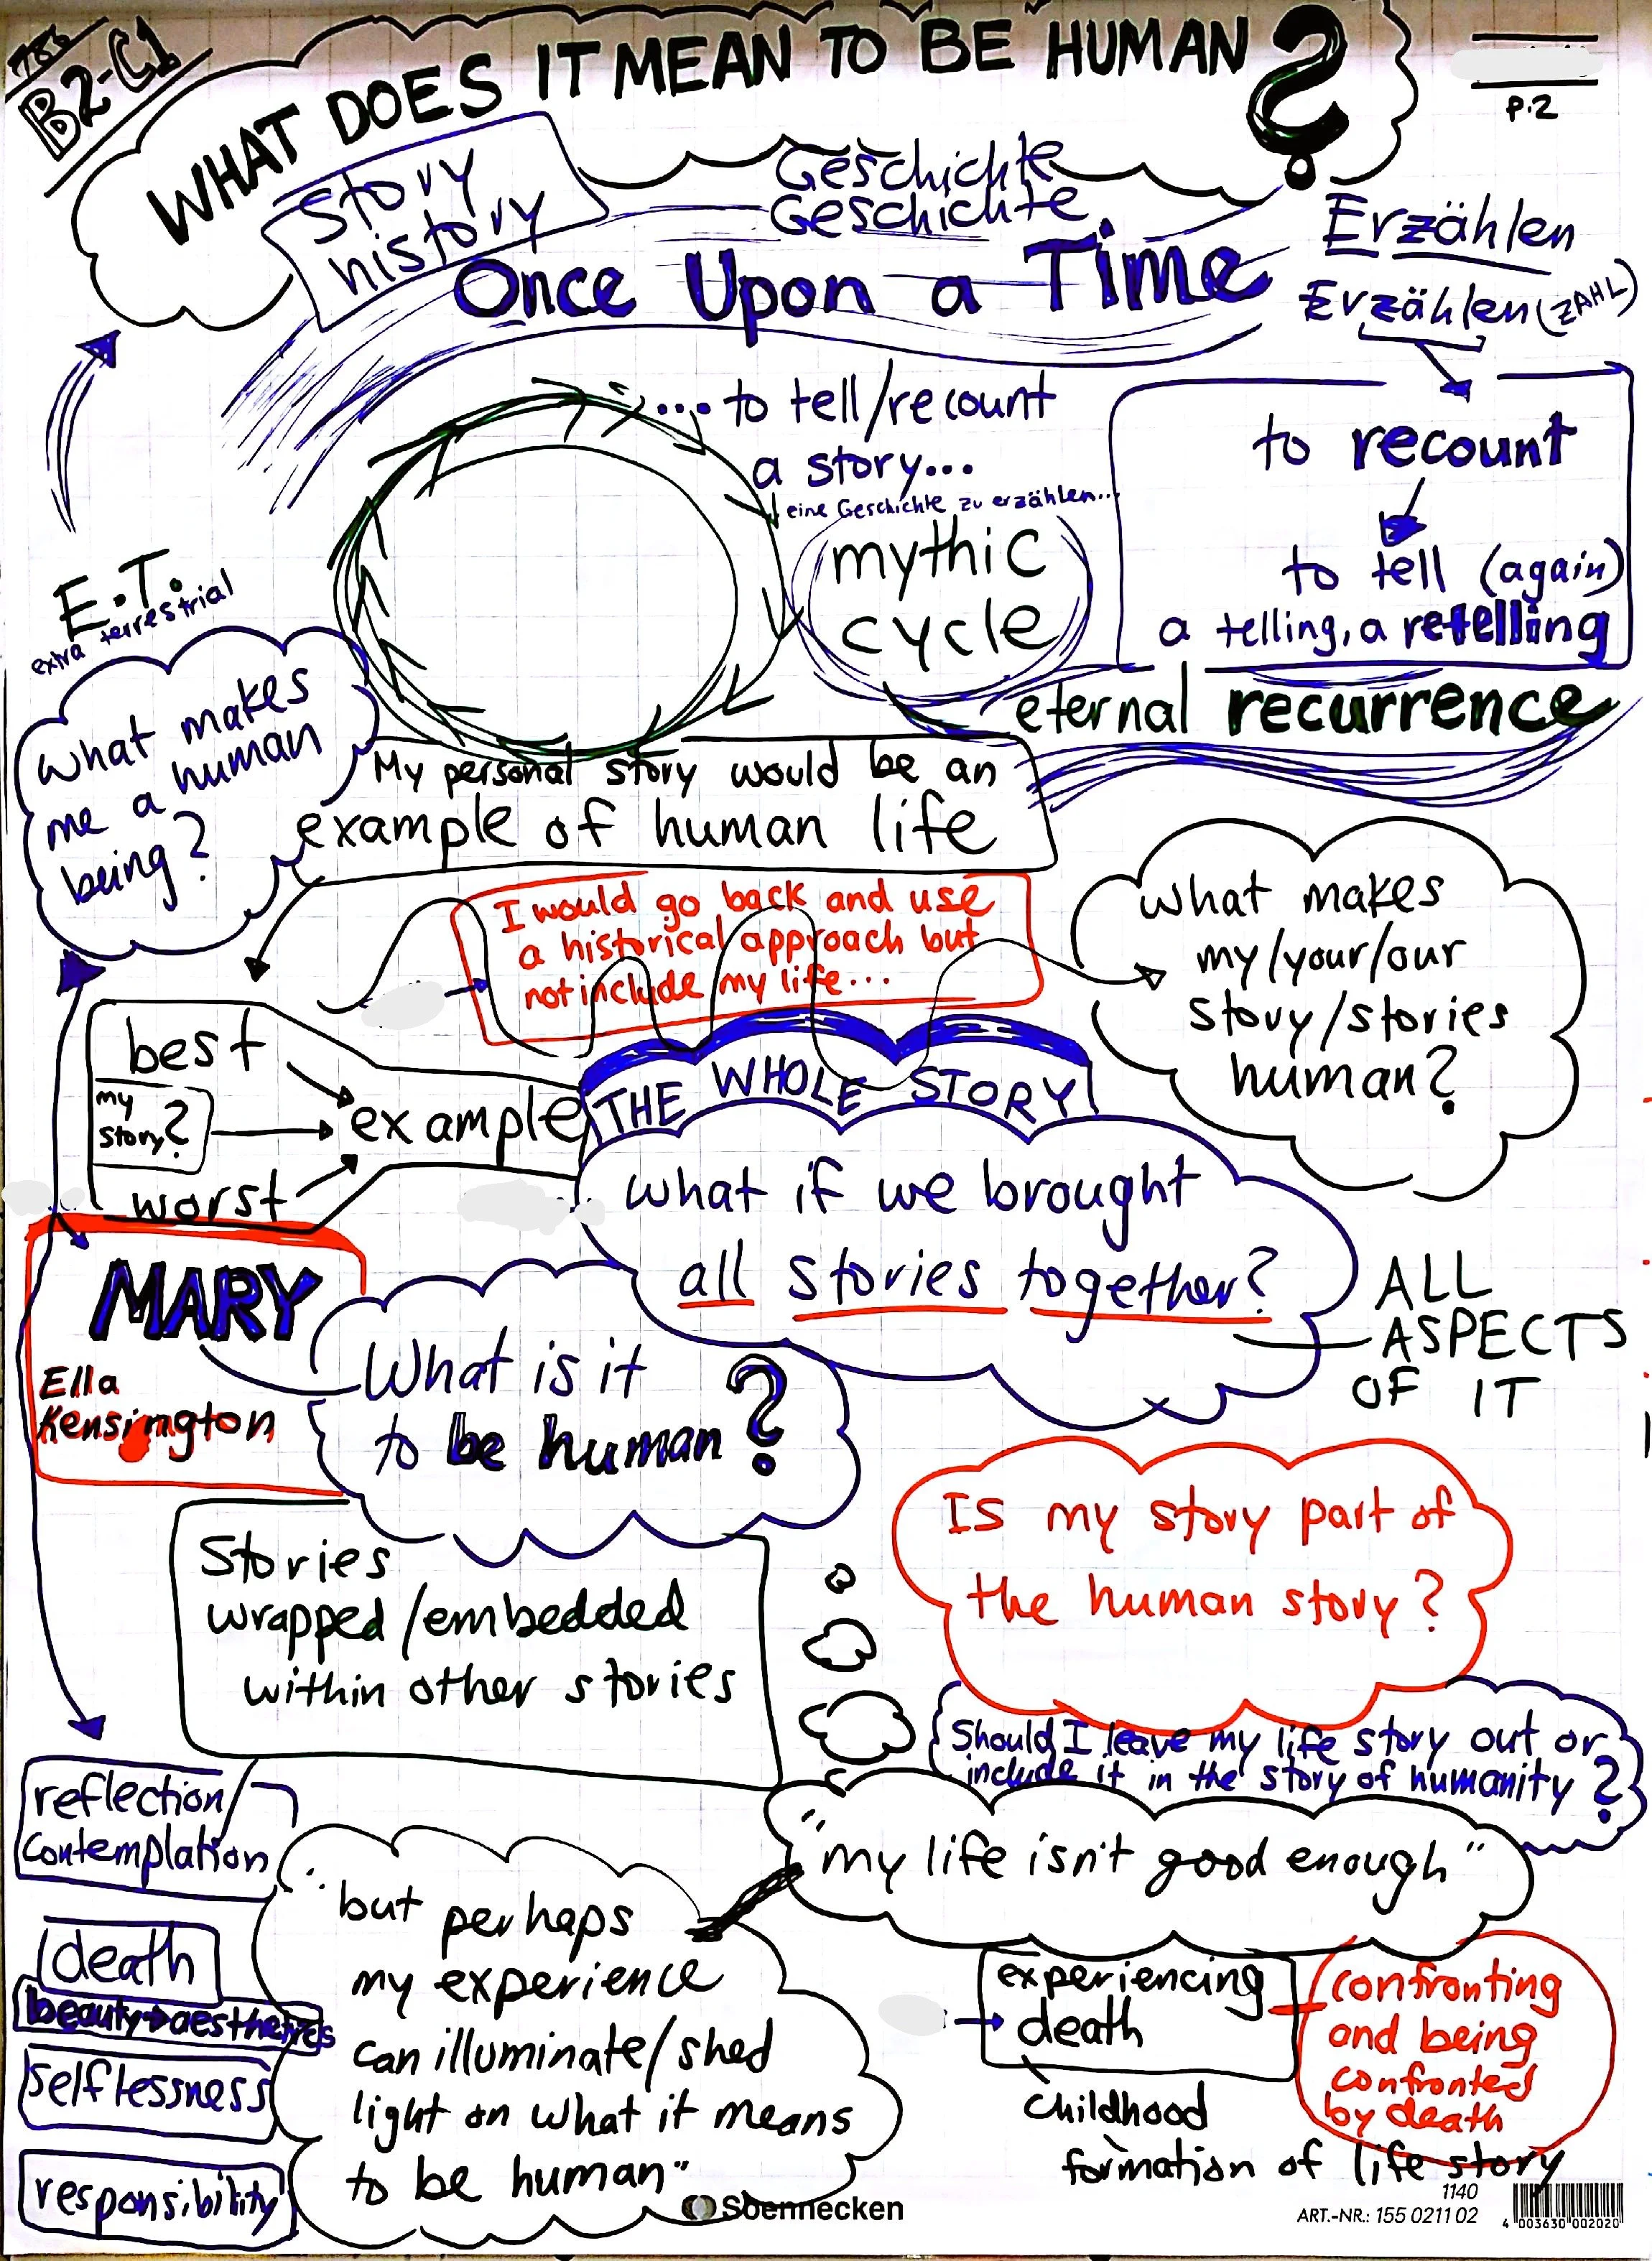 B2-C1
WHAT DOES IT MEAN TO BE HUMAN?
p.2
Story
history
Geschichte
Geschichte
Once Upon a Time
Erzählen
Erzählen (ZAHL)
... to tell/recount
a story...
eine Geschichte zu erzählen...
mythic
cycle
to recount
to tell (again)
a telling, a retelling
eternal recurrence
E.T.
extra terrestrial
What makes
me a human
being?
My personal story would be an
example of human life
I would go back and use
a historical approach but
not include my life...
What makes
my/your/our
story/stories
human?
best
my
story?
worst
example
THE WHOLE STORY
What if we brought
all stories together?
ALL
ASPECTS
OF IT
MARY
Ella
Kensington
What is it
to be human?
Stories
wrapped/embedded
within other stories
Is my story part of
the human story?
Should I leave my life story out or
include it in the story of humanity?
"my life isn't good enough"
"but perhaps
my experience
can illuminate/shed
light on what it means
to be human"
reflection/
contemplation
death
beauty→aesthetics
selflessness
responsibility
experiencing
death
confronting
and being
confronted
by death
childhood
formation of life story
Soennecken
1140
ART.-NR.: 155 0211 02
4 003630 002020